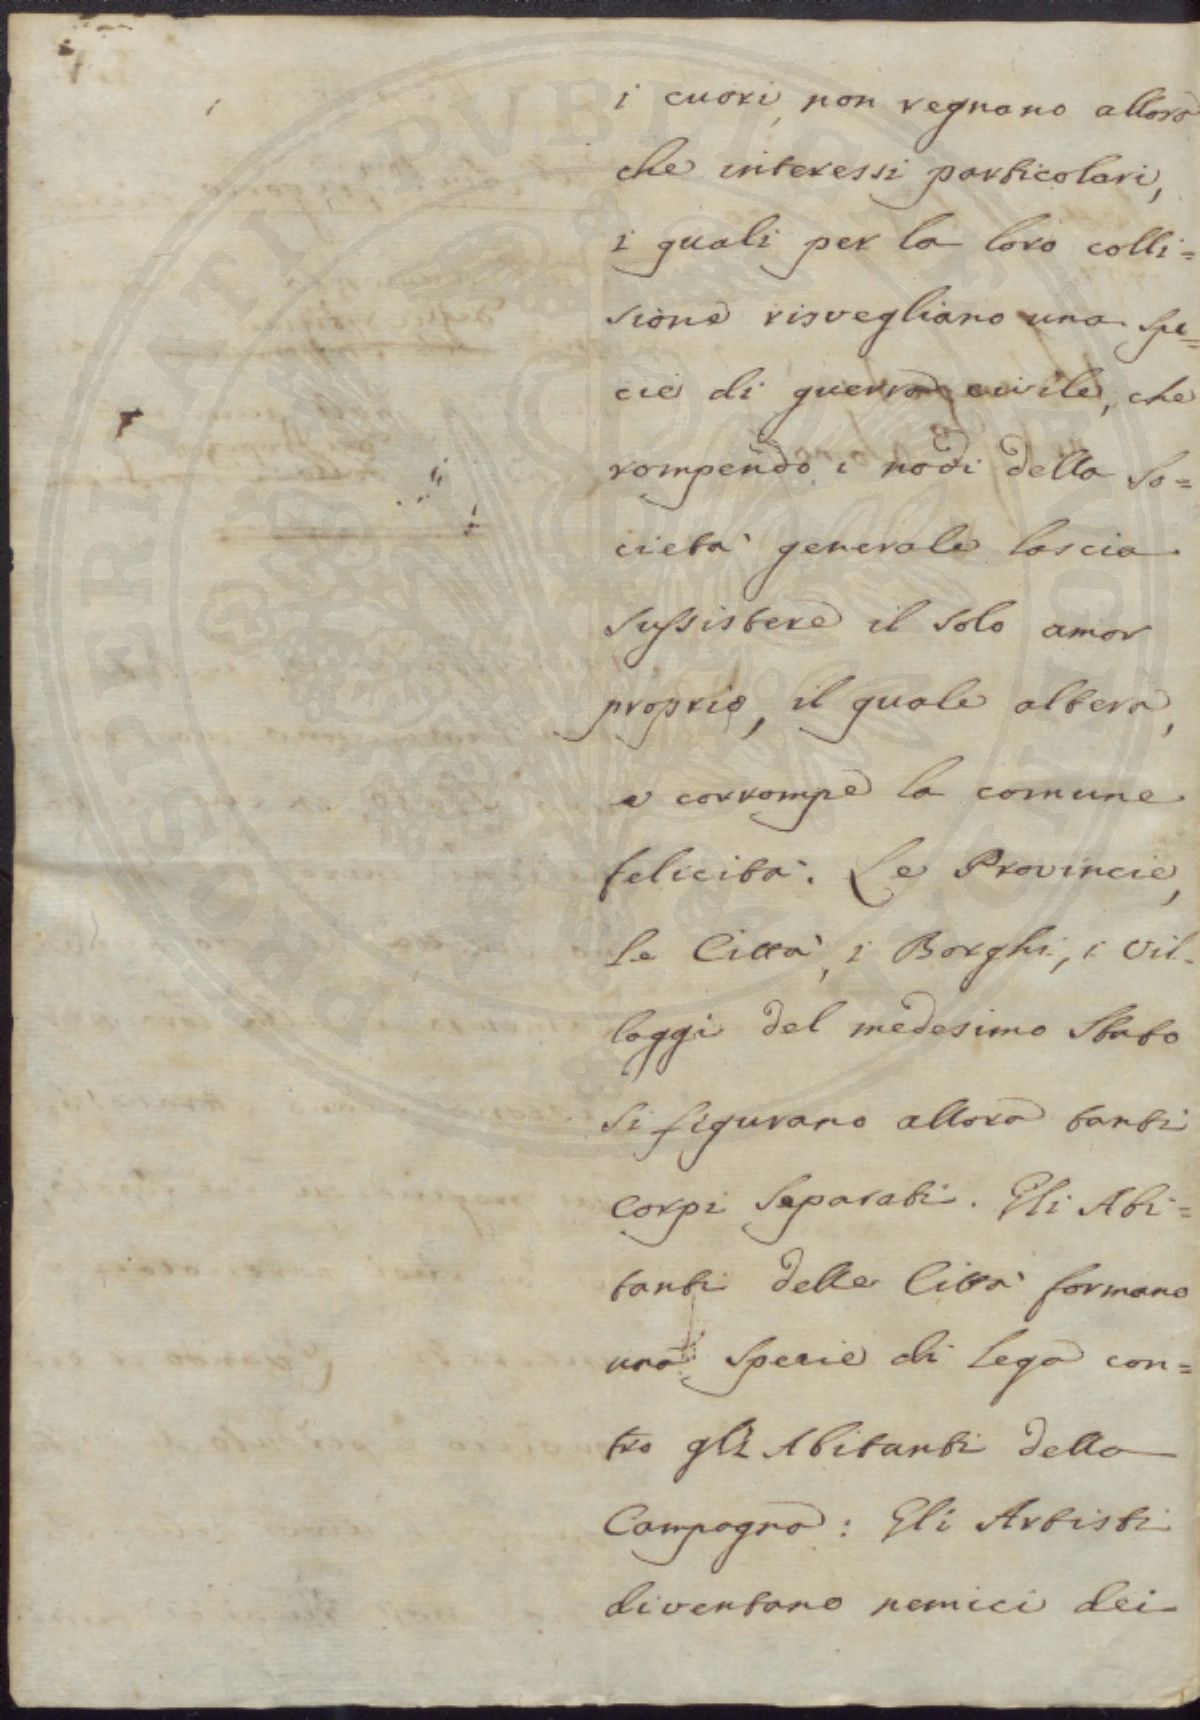 i cuori, non regnano allora
che interessi particolari,
i quali per la loro colli=
sione risvegliano una spe=
cie di guerra civile, che
rompendo i nodi della so=
cietà generale lascia
sussistere il solo amor
proprio, il quale altera,
e corrompe la comune
felicità. Le Provincie,
le Città, i Borghi, i Vil=
laggi del medesimo Stato
si figurano allora tanti
corpi separati. Gli Abi=
tanti delle Città formano
una specie di Lega con=
tro gli Abitanti della
Campagna: Gli Artisti
diventano nemici dei